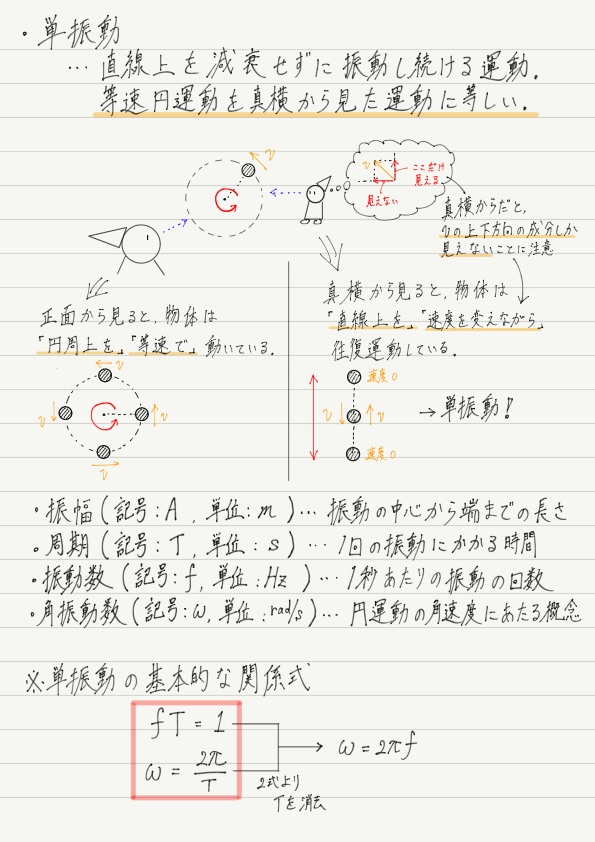 ・単振動
… 直線上を減衰せずに振動し続ける運動.
等速円運動を真横から見た運動に等しい.
v
v
ここだけ
見える
見えない
真横からだと,
vの上下方向の成分しか
見えないことに注意
正面から見ると, 物体は
「円周上を」「等速で」動いている.
v
v
v
v
真横から見ると, 物体は
「直線上を」「速度を変えながら」
往復運動している.
速度0
v
v
速度0
→ 単振動!
・振幅 (記号: A , 単位: m) … 振動の中心から端までの長さ
・周期 (記号: T , 単位: s) … 1回の振動にかかる時間
・振動数 (記号: f, 単位: Hz) … 1秒あたりの振動の回数
・角振動数 (記号: ω, 単位: rad/s) … 円運動の角速度にあたる概念
※単振動の基本的な関係式
fT = 1
ω = 2π/T
2式より
Tを消去
ω = 2πf